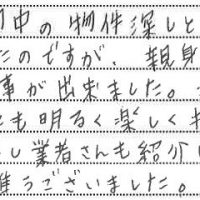 中の物件探しと
たのですが、親身
事が出来ました。
も明るく楽しく
し業者さんも紹介
うございました。